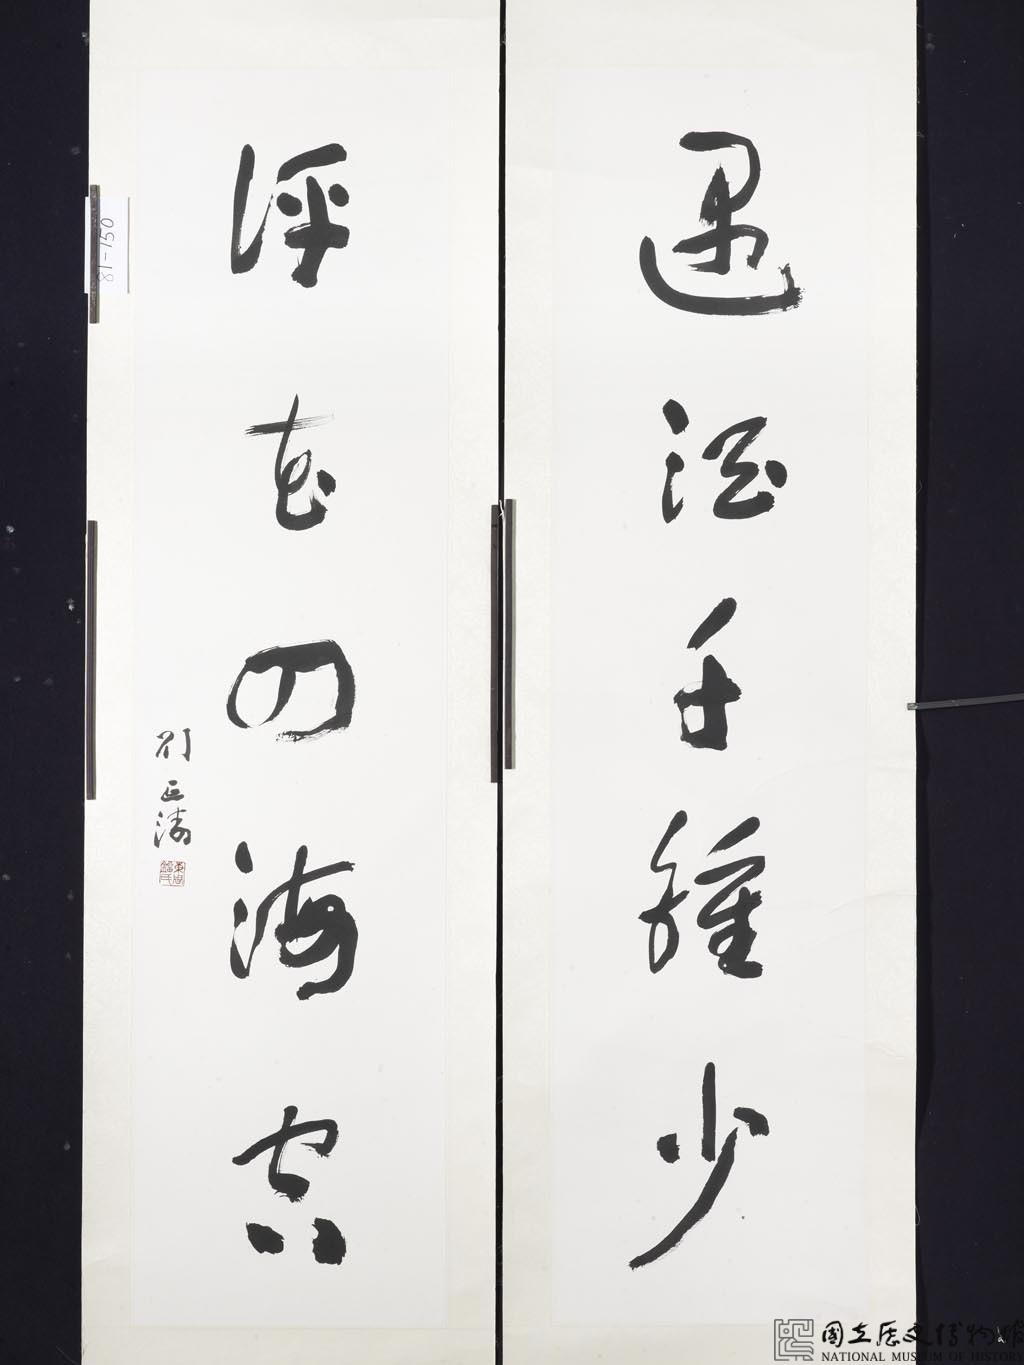 遇酒千鍾少
評花四海
劉延濤
81-150
國立歷史博物館
NATIONAL MUSEUM OF HISTORY